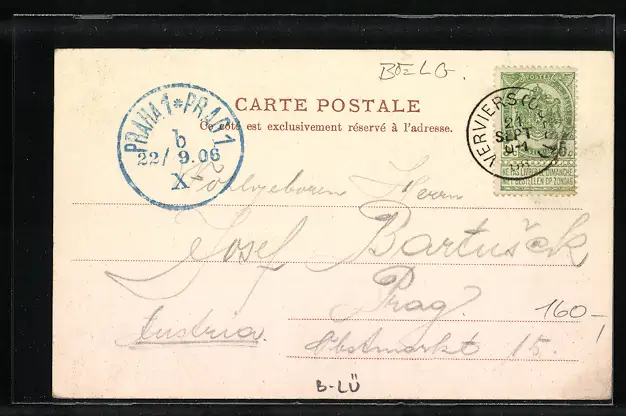 BELG.
CARTE POSTALE
Ce côté est exclusivement réservé à l'adresse.
PRAHA 1 * PRAG 1
b
22/9.06
X
VERVIERS
21
SEPT
POSTES
5
NE PAS LIVRER LE DIMANCHE
NIET BESTELLEN OP ZONDAG
Herrn
Josef Bartušek
Prag.
Austria.
160-
Obstmarkt 15.
B-LÜ